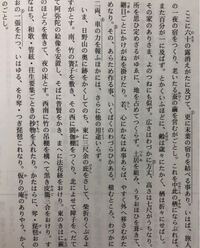 ここに六十の露消えがたに及びて、更に末葉の宿りを結べる事あり。いはば、旅人
の一夜の宿をつくり、老いたる蚕の繭を営むがごとし。これを中比の栖にならぶれば、
また百分が一に及ばず。とかくいふほどに、齢は歳々にたかく、栖は折々にせばし。
その家のありさま、よのつねにも似ず。広さはわづかに方丈、高さは七尺がうちなり。
所を思ひ定めざるがゆゑに、地を占めてつくらず。土居を組み、うちおほひを葺きて、
継目ごとにかけがねを掛けたり。若し、心にかなはぬ事あらば、やすく外へ移さむがた
めなり。その改め作る事、いくばくの煩ひかある。積むところわづかに
二両、車の力を報ふ外には、さらに他の用途いらず。
いま、日野山の奥に跡をかくしてのち、東に三尺余の庇をさして、柴折りくぶるよ
すがとす。南、竹の簀子を敷き、その西に閼伽棚をつくり、北によせて障子をへだて
て阿弥陀の絵像を安置し、そばに普賢をかき、まへに法花経をおけり。東のきはに蕨
のほどろを敷きて、夜の床とす。西南に竹の吊棚を構へて、黒き皮籠三合をおけり。す
なはち、和歌・管絃・往生要集ごときの抄物を入れたり。かたはらに、琴・琵琶おの
おの一張を立つ。いはゆる、をり琴・つぎ琵琶これなり。仮りの庵のありやう、かく
のごとし。